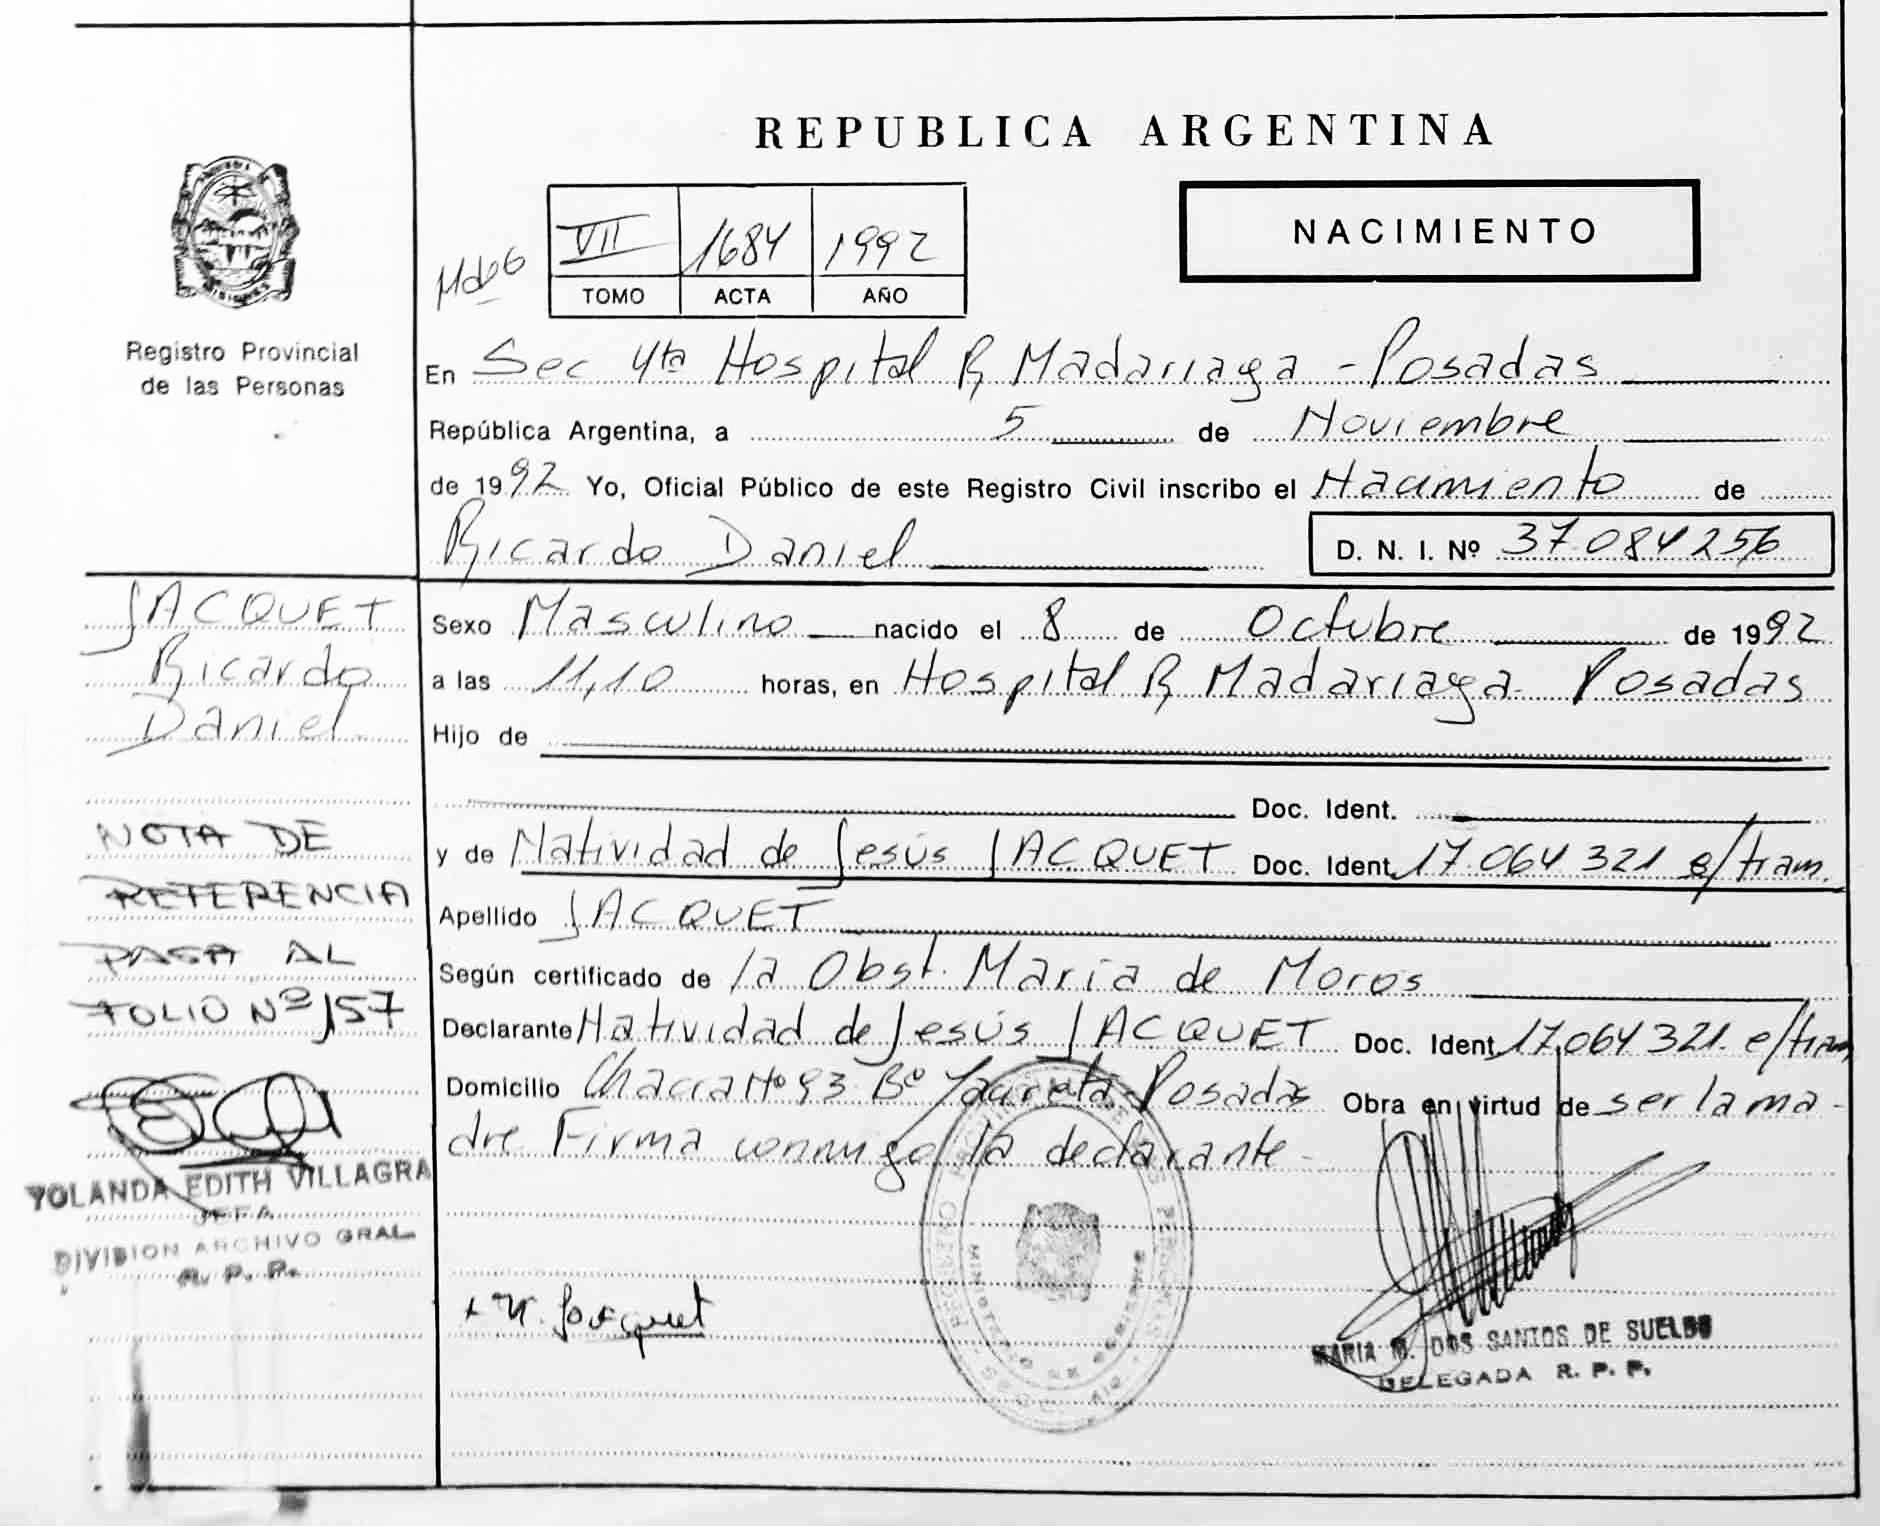 REPUBLICA ARGENTINA
NACIMIENTO
VII 1684 1992
TOMO ACTA AÑO
MISIONES
Registro Provincial
de las Personas
En Sec 4ta Hospital R Madariaga - Posadas
República Argentina, a 5 de Noviembre
de 1992 Yo, Oficial Público de este Registro Civil inscribo el Nacimiento de
Ricardo Daniel D. N. I. Nº 37.084256
JACQUET
Ricardo
Daniel
Sexo Masculino nacido el 8 de Octubre de 1992
a las 11,10 horas, en Hospital R Madariaga Posadas
Hijo de
Doc. Ident.
y de Natividad de Jesús JACQUET Doc. Ident. 17.064 321 e/tram.
Apellido JACQUET
Según certificado de la Obst. María de Moros
Declarante Natividad de Jesús JACQUET Doc. Ident. 17.064 321. e/tram
Domicilio Chacra Nº 93 Bº Yacireta Posadas Obra en virtud de ser la ma-
dre Firma conmigo la declarante -
NOTA DE
REFERENCIA
PASA AL
FOLIO Nº 157
YOLANDA EDITH VILLAGRA
JEFA
DIVISION ARCHIVO GRAL
R. P. P.
N. Jacquet
MARIA M. DOS SANTOS DE SUELDO
DELEGADA R. P. P.